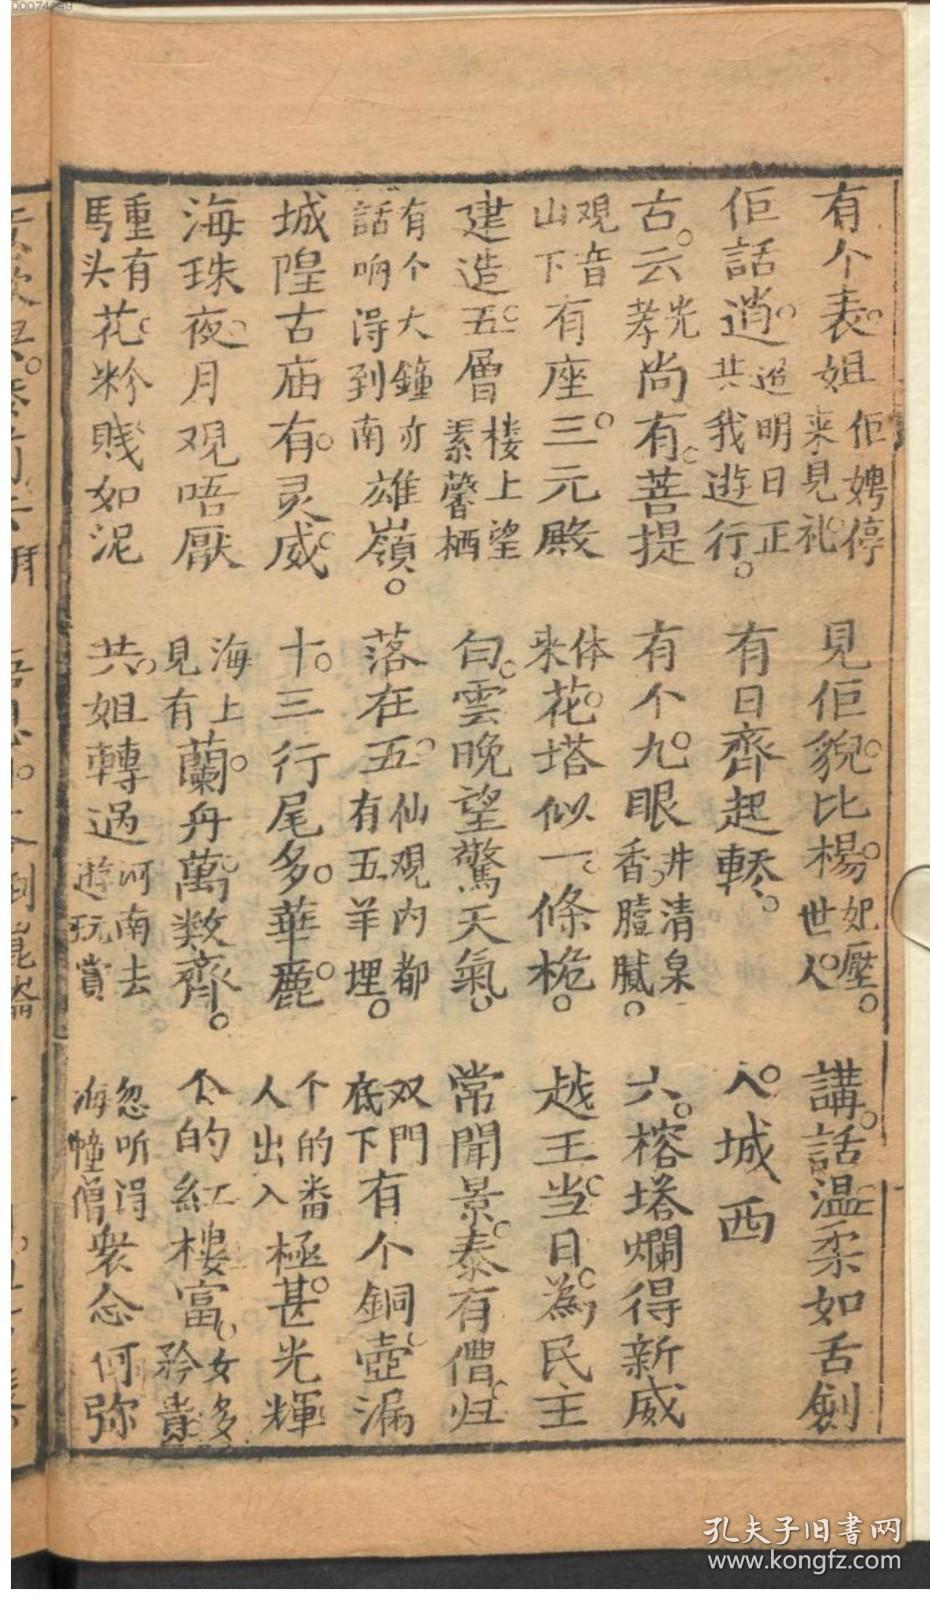 有个表姐佢娉停来見礼
見佢貌比楊妃壓世人
講話温柔如舌劍
佢話逍遥明日正共我遊行
有日齊起轎
入城西
古云光孝尚有菩提
有个九眼井清泉香膻膩
六榕塔爛得新威
观音山下有座三元殿
体来花塔似一條桅
越王当日為民主
建造五層楼上望素馨栖
白雲晚望驚天氣
常聞景泰有僧归
有个大鐘亦話响得到南雄嶺
落在五仙观内都有五羊埋
双門底下有个銅壺漏
城隍古庙有灵威
十三行尾多華麗
个的番人出入極甚光輝
海珠夜月观唔厭
海上見有蘭舟萬数齊
个的紅樓富女多矜貴
重有馬头花粉賤如泥
共姐轉过河南去遊玩賞
忽听得海幢僧衆念何弥
孔夫子旧書网
www.kongfz.com